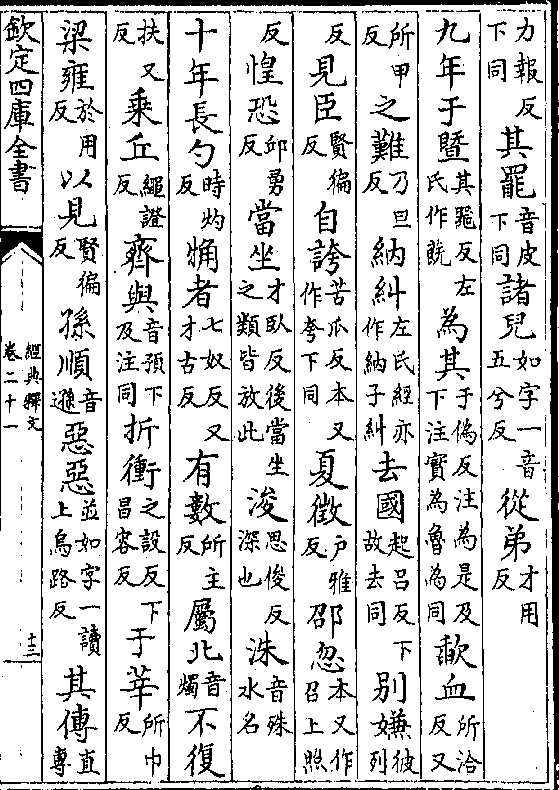 力報反下同其罷音皮下同諸兒如字一音五兮反從弟才用反
九年于暨其器反左氏作蔇為其于偽反注為是及下注實為魯為同歃血所洽反又
所甲反之難乃旦反納糾左氏經亦作納子糾去國起呂反下故去同別嫌彼列
反見臣賢徧反自誇苦瓜反本又作夸下同夏徵戶雅反邵忽本又作召上照
反惶恐邱勇反當坐才臥反後當坐之類皆放此浚思俊反深也洙音殊水名
十年長勺時灼反觕者七奴反又才古反有數所主反屬北音燭不復
扶又反乘丘繩證反齊與音預下及注同折衝之設反下昌容反于莘所巾反
梁雍於用反以見賢徧反孫順音遜惡惡並如字一讀上烏路反其傳直專
欽定四庫全書
經典釋文
卷二十一
十三